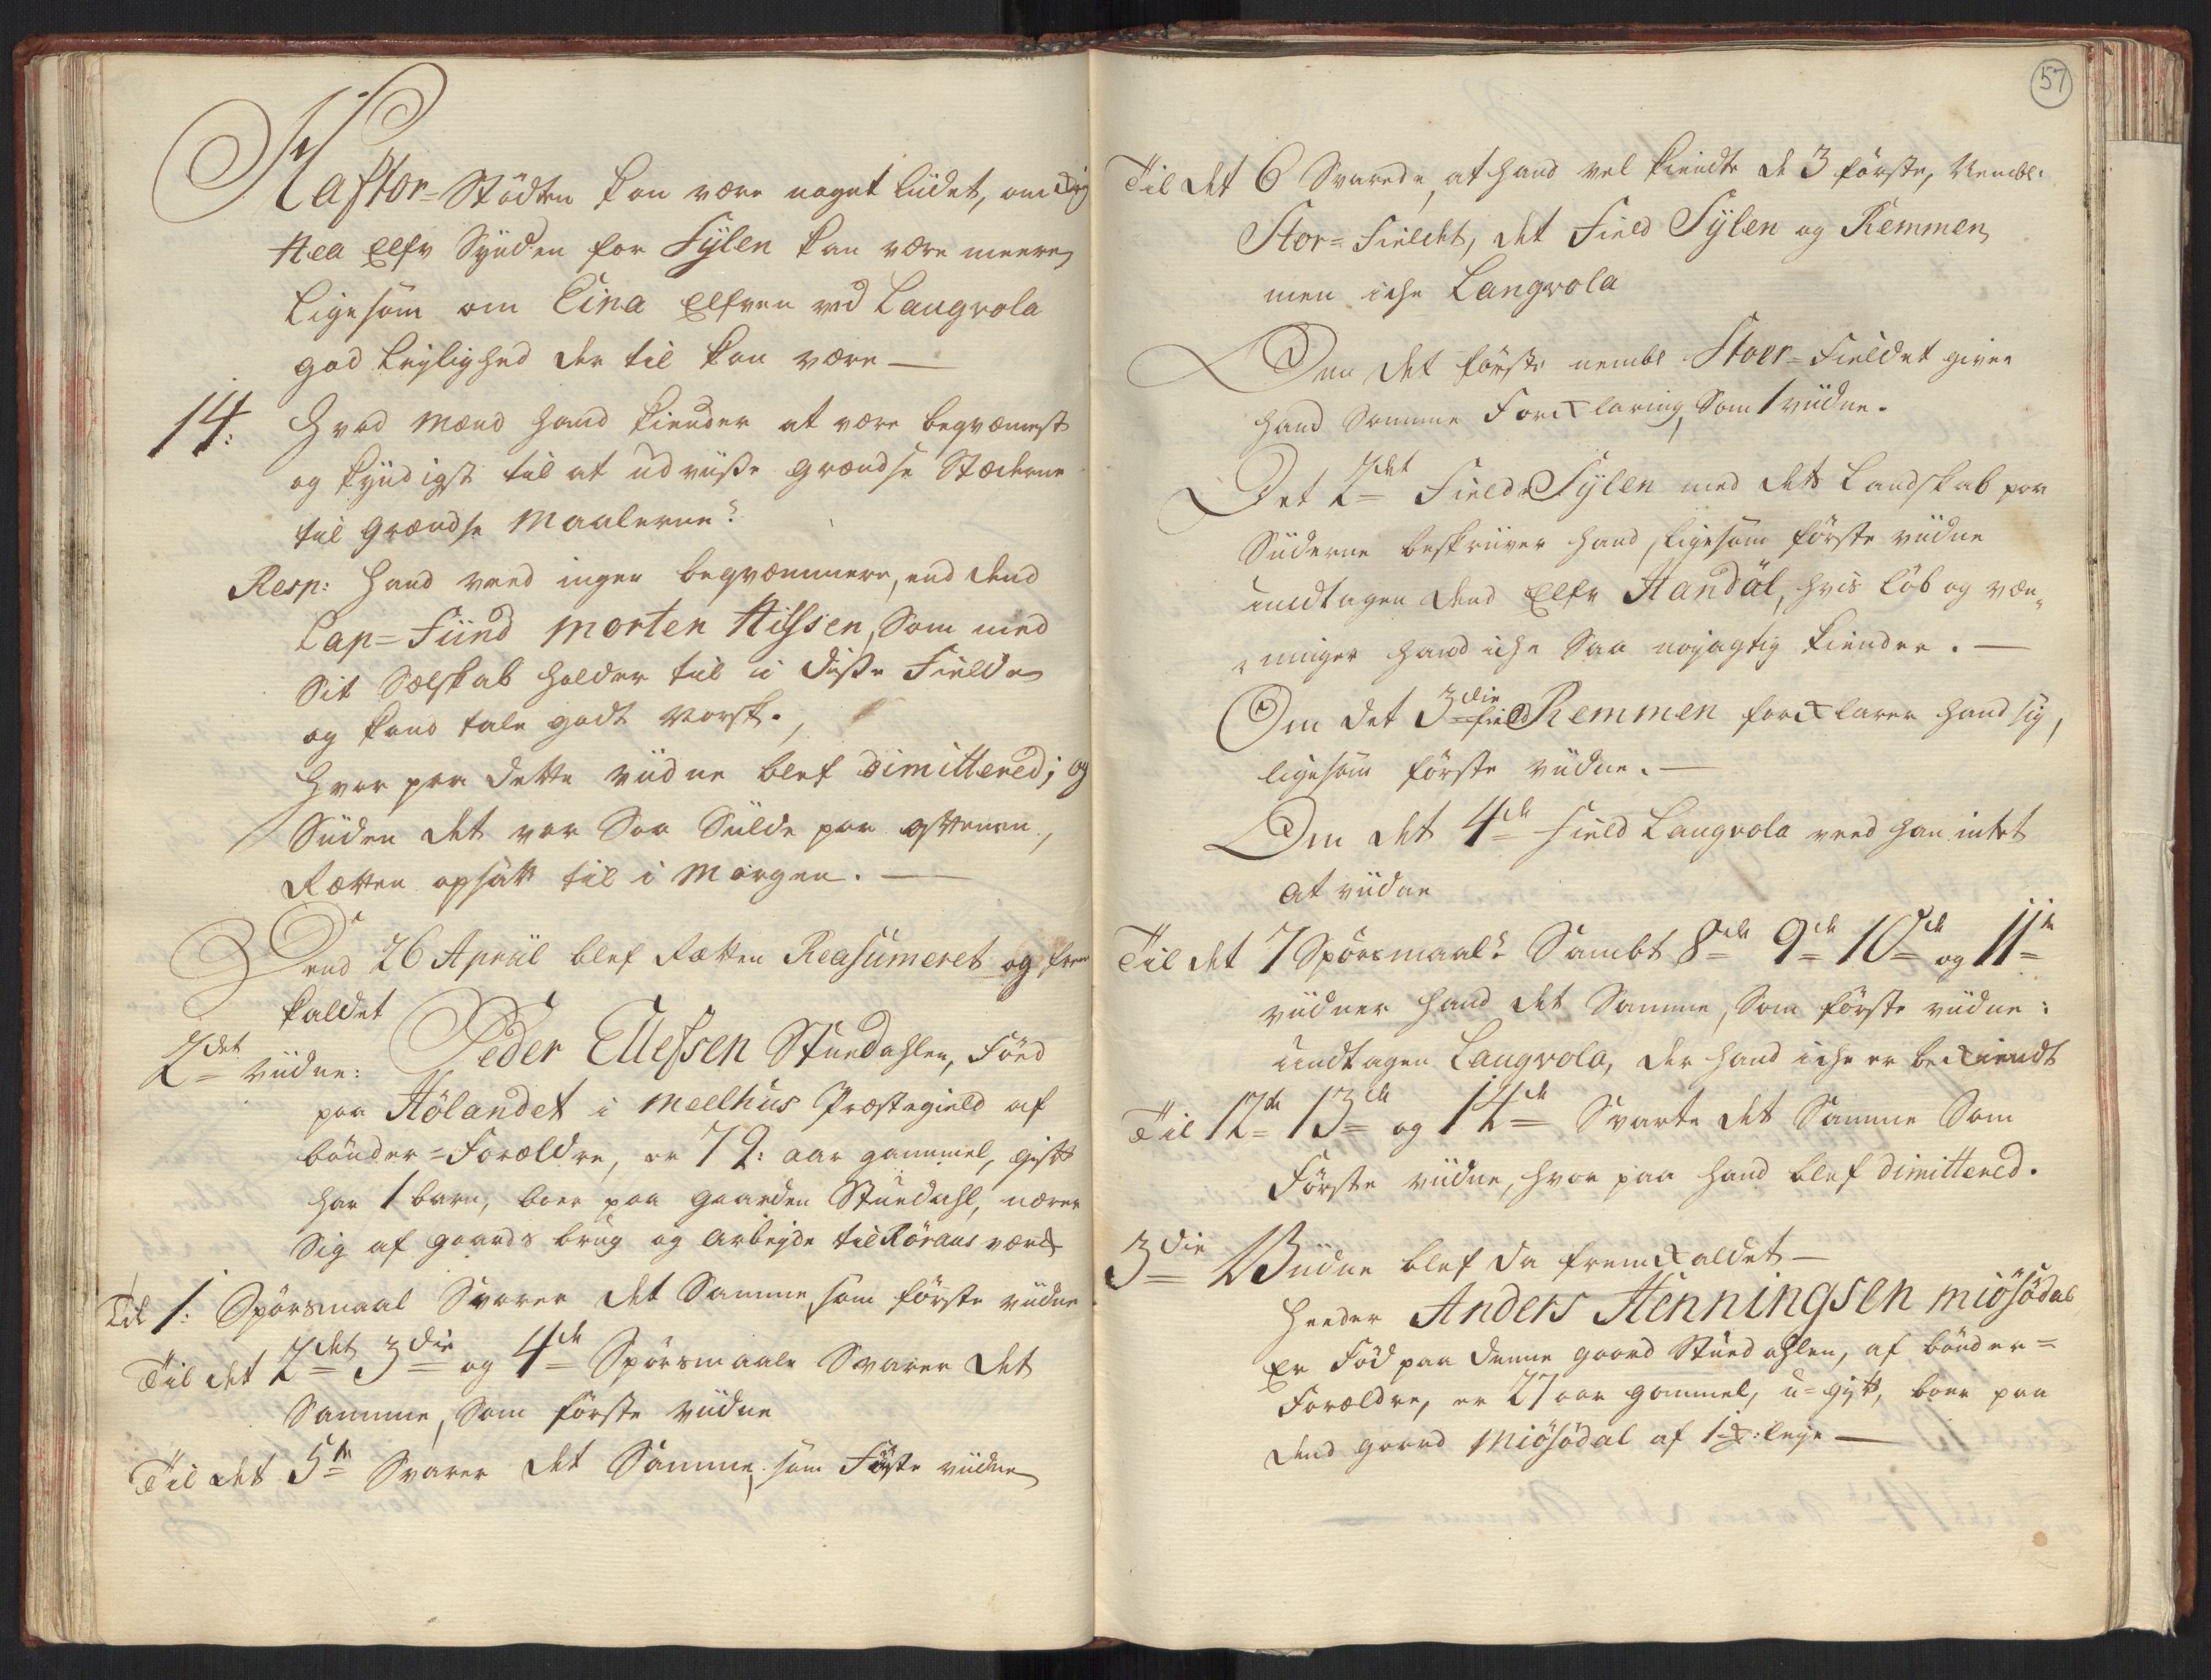 Kastor-Stödten kan være noget liidet, om og
Nea Elfv Synden for Sylen kan være meere,
Ligesom om Eina Elfven ved Langvola
god Leylighed der til kan være —
14: Hvad Mænd hand kiender at være begvæmest
og kyndigst til at udviise grændse Stæderne
til Grændse Maalerne?
Resp: Hand veed ingen begvæmmere, end dend
Lap-Find Morten Nilssen, Som med
Sit Selskab holder til i disse Fielde
og kand tale godt Norsk.,
Hvor paa dette viidne blef dimittered; og
Siiden det var Saa Siilde paa Aftenen,
Rætten opsatt til i Morgen. —
Dend 26 Apriil blef Rætten Reasümeret og frem
kaldet
2det viidne: Peder Ellefsen Stuedahlen, Föed
paa Hölandet i Meelhus Præstegield af
bönder-Forældre, er 72: aar gammel, gift
har 1 barn, boer paa Gaarden Stuedahl, nærer
Sig af gaards brug og Arbeyde til Röraas værck
Til 1: Spörsmaal Svarer det Samme, som förste viidne
Til det 2det 3die og 4de Spörsmaale Svarer det
Samme, Som förste viidne
Til det 5te Svarer det Samme, som Föste viidne
57
Til det 6 Svarede, at hand vel kiendte de 3 förste, Nembl:
Stor-Fieldet, det Field Sylen og Remmen,
men iche Langvola
Om det förste nembl Stoer-Fieldet giver
hand Samme Forcklaring, Som 1 viidne.
Det 2det Field Sylen med dets Landskab paa
Siiderne beskriiver hand, ligesom förste viidne
undtagen dend Elfv Handöl, hvis Löb og væn„
„ninger hand iche Saa nöjagtig kiender. —
Om det 3die field Remmen forcklarer hand sig,
ligesom förste viidne. —
Om det 4de Field Langvola veed han intet
at viidne
Til det 7 Spörsmaal: Sambt 8de 9de 10de og 11te
viidner hand det Samme, Som förste viidne:
undtagen Langvola, der hand iche er beckiendt
Til 12te 13de og 14de Svarte det Samme Som
Förste viidne, hvor paa hand blef dimittered.
3die Viidne blef da fremckaldet —
Heeder Anders Henningsen Miösödal
Er Föd paa denne gaard Stuedahlen, af bönder-
Forældre, er 27 aar gammel, u-gift, boer paa
dend gaard Miösödal af leye —